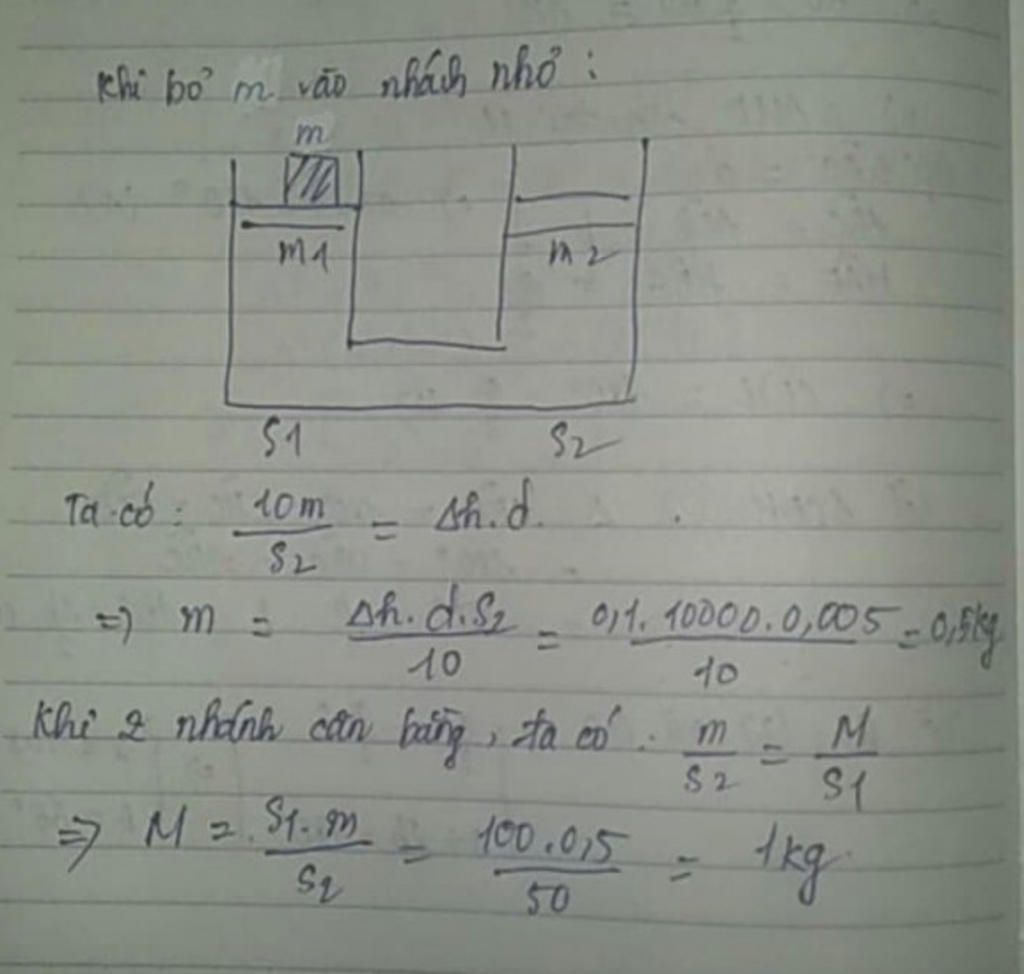 Khi bỏ m vào nhách nhỏ :
m
m1 m2
S1 S2
Ta có : 10m / S2 = Δh.d.
=> m = Δh.d.S2 / 10 = 0,1.10000.0,005 / 10 = 0,5kg
Khi 2 nhánh cân bằng, ta có : m / S2 = M / S1
=> M = S1.m / S2 = 100.0,5 / 50 = 1kg